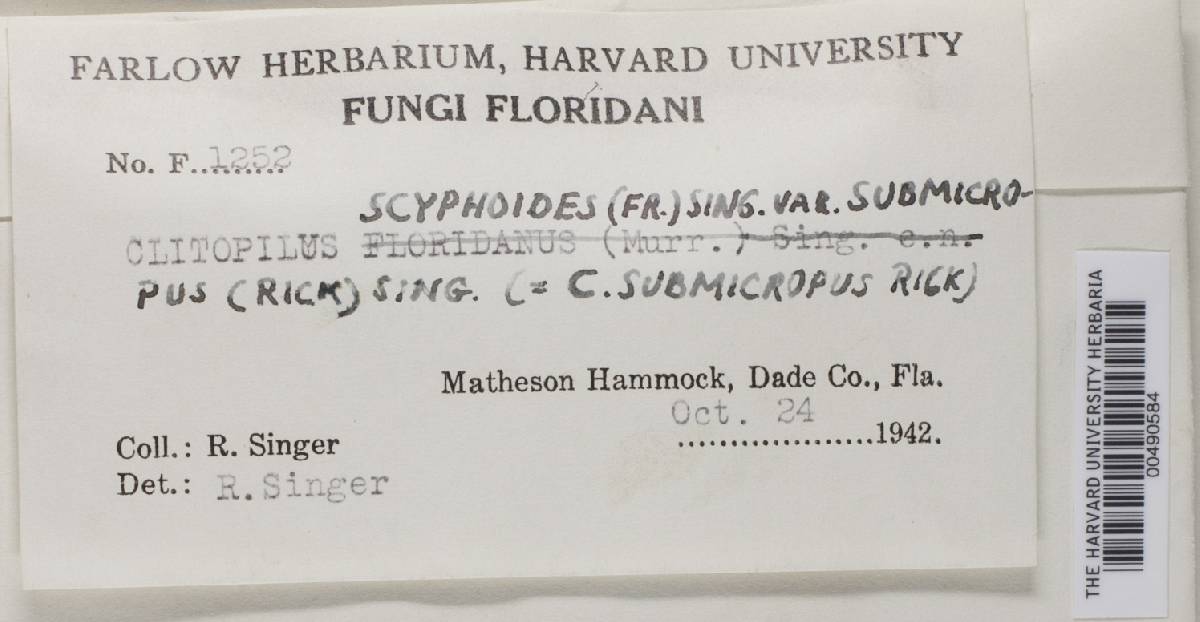 FARLOW HERBARIUM, HARVARD UNIVERSITY
FUNGI FLORIDANI
No. F..1252
SCYPHOIDES (FR.) SING. VAR. SUBMICRO-
CLITOPILUS FLORIDANUS (Murr.) Sing. c.n.
PUS (RICK) SING. (= C. SUBMICROPUS RICK)
Matheson Hammock, Dade Co., Fla.
Oct. 24
...................1942.
Coll.: R. Singer
Det.: R. Singer
THE HARVARD UNIVERSITY HERBARIA
00490584